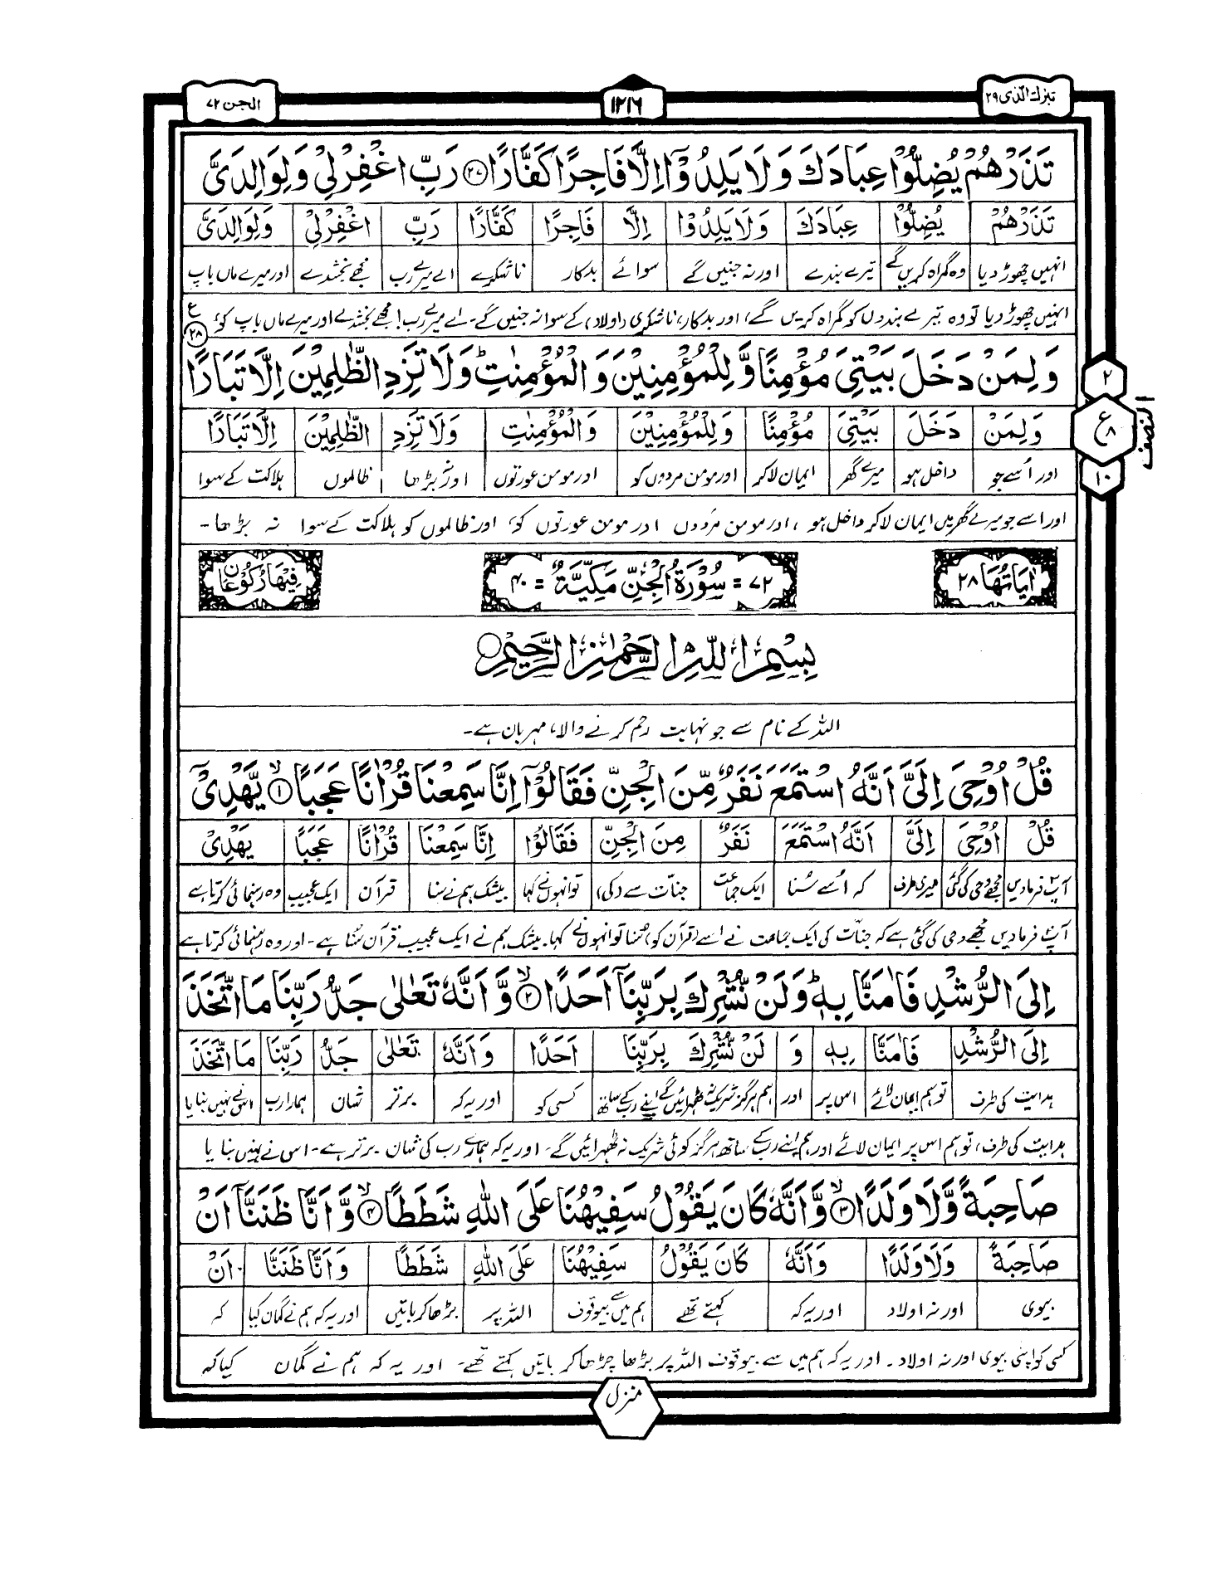 تبٰرك الّذی ۲۹
۱۲۱۶
الجن ۷۲
تَذَرْهُمْ يُضِلُّوْا عِبَادَكَ وَلَا يَلِدُوْٓا اِلَّا فَاجِرًا كَفَّارًا ۲۷ رَبِّ اغْفِرْلِيْ وَلِوَالِدَيَّ
تَذَرْهُمْ يُضِلُّوْا عِبَادَكَ وَلَا يَلِدُوْا اِلَّا فَاجِرًا كَفَّارًا رَبِّ اغْفِرْلِيْ وَلِوَالِدَيَّ
انہیں چھوڑ دیا وہ گمراہ کریں گے تیرے بندے اور نہ جنیں گے سوائے بدکار ناشکرے اے میرے رب مجھے بخشدے اور میرے ماں باپ
انہیں چھوڑ دیا تو وہ تیرے بندوں کو گمراہ کریں گے، اور بدکار، ناشکری (اولاد) کے سوا نہ جنیں گے۔ اے میرے رب! مجھے بخشدے اور میرے ماں باپ کو،
ع ۲۸
وَلِمَنْ دَخَلَ بَيْتِيَ مُؤْمِنًا وَّلِلْمُؤْمِنِيْنَ وَالْمُؤْمِنٰتِ ؕ وَلَا تَزِدِ الظّٰلِمِيْنَ اِلَّا تَبَارًا
۲
ع ۸
۱۰
النصف
وَلِمَنْ دَخَلَ بَيْتِيَ مُؤْمِنًا وَلِلْمُؤْمِنِيْنَ وَالْمُؤْمِنٰتِ وَلَا تَزِدِ الظّٰلِمِيْنَ اِلَّا تَبَارًا
اور اُسے جو داخل ہو میرے گھر ایمان لاکر اور مومن مردوں کو اور مومن عورتوں اور نہ بڑھا ظالموں ہلاکت کے سوا
اور اسے جو میرے گھر میں ایمان لاکر داخل ہو، اور مومن مردوں اور مومن عورتوں کو، اور ظالموں کو ہلاکت کے سوا نہ بڑھا۔
اٰيَاتُهَا ۲۸
۷۲ = سُوْرَةُ الْجِنِّ مَكِّيَّةٌ = ۴۰
فِيْهَا رُكُوْعَانِ
بِسْمِ اللهِ الرَّحْمٰنِ الرَّحِيْمِ
اللہ کے نام سے جو نہایت رحم کرنے والا، مہربان ہے۔
قُلْ اُوْحِيَ اِلَيَّ اَنَّهُ اسْتَمَعَ نَفَرٌ مِّنَ الْجِنِّ فَقَالُوْٓا اِنَّا سَمِعْنَا قُرْاٰنًا عَجَبًا ۱ۙ يَّهْدِيْٓ
قُلْ اُوْحِيَ اِلَيَّ اَنَّهُ اسْتَمَعَ نَفَرٌ مِنَ الْجِنِّ فَقَالُوْٓا اِنَّا سَمِعْنَا قُرْاٰنًا عَجَبًا يَهْدِيْٓ
آپؐ فرمادیں مجھے وحی کی گئی میری طرف کہ اُسے سُنا ایک جماعت جنات سے (کی) تو انہوں نے کہا بیشک ہم نے سنا قرآن ایک عجیب وہ رہنمائی کرتا ہے
آپؐ فرمادیں مجھے وحی کی گئی ہے کہ جنّات کی ایک جماعت نے اسے (قرآن کو) سُنا تو انہوں نے کہا۔ بیشک ہم نے ایک عجیب قرآن سُنا ہے۔ اور وہ رہنمائی کرتا ہے
اِلَى الرُّشْدِ فَاٰمَنَّا بِهٖ ؕ وَلَنْ نُّشْرِكَ بِرَبِّنَآ اَحَدًا ۲ۙ وَّاَنَّهٗ تَعٰلٰى جَدُّ رَبِّنَا مَا اتَّخَذَ
اِلَى الرُّشْدِ فَاٰمَنَّا بِهٖ وَ لَنْ نُشْرِكَ بِرَبِّنَا اَحَدًا وَاَنَّهٗ تَعٰلٰى جَدُّ رَبِّنَا مَا اتَّخَذَ
ہدایت کی طرف تو ہم ایمان لائے اس پر اور ہم ہرگز شریک نہ ٹھہرائیں گے اپنے رب کے ساتھ کسی کو اور یہ کہ برتر شان ہمارا رب اس نے نہیں بنایا
ہدایت کی طرف، تو ہم اس پر ایمان لائے اور ہم اپنے رب کے ساتھ ہرگز کوئی شریک نہ ٹھہرائیں گے۔ اور یہ کہ ہمارے رب کی شان برتر ہے۔ اس نے نہیں بنایا
صَاحِبَةً وَّلَا وَلَدًا ۳ۙ وَّاَنَّهٗ كَانَ يَقُوْلُ سَفِيْهُنَا عَلَى اللهِ شَطَطًا ۴ۙ وَّاَنَّا ظَنَنَّآ اَنْ
صَاحِبَةً وَلَا وَلَدًا وَاَنَّهٗ كَانَ يَقُوْلُ سَفِيْهُنَا عَلَى اللهِ شَطَطًا وَاَنَّا ظَنَنَّا اَنْ
بیوی اور نہ اولاد اور یہ کہ کہتے تھے ہم میں بیوقوف اللہ پر بڑھا کر باتیں اور یہ کہ ہم نے گمان کیا کہ
کسی کو اپنی بیوی اور نہ اولاد۔ اور یہ کہ ہم میں سے بیوقوف اللہ پر بڑھا چڑھا کر باتیں کہتے تھے۔ اور یہ کہ ہم نے گمان کیا کہ
منزل